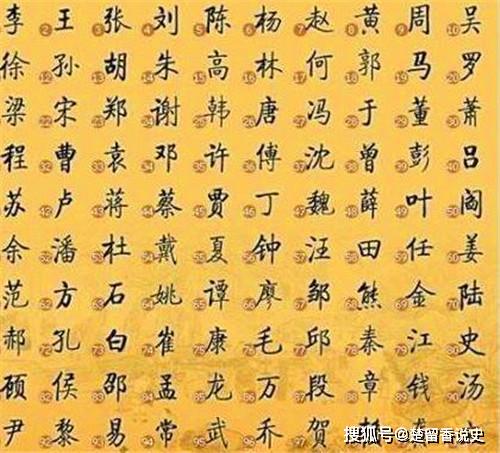 李 2 王 3 张 4 刘 5 陈 6 杨 7 赵 8 黄 9 周 10 吴
徐 12 孙 13 胡 14 朱 15 高 16 林 17 何 18 郭 19 马 20 罗
梁 22 宋 23 郑 24 谢 25 韩 26 唐 27 冯 28 于 29 董 30 萧
程 32 曹 33 袁 34 邓 35 许 36 傅 37 沈 38 曾 39 彭 40 吕
苏 42 卢 43 蒋 44 蔡 45 贾 46 丁 47 魏 48 薛 49 叶 50 阎
余 52 潘 53 杜 54 戴 55 夏 56 钟 57 汪 58 田 59 任 60 姜
范 62 方 63 石 64 姚 65 谭 66 廖 67 邹 68 熊 69 金 70 陆
郝 72 孔 73 白 74 崔 75 康 76 毛 77 邱 78 秦 79 江 80 史
顾 82 侯 83 邵 84 孟 85 龙 86 万 87 段 88 章 89 钱 90 汤
尹 92 黎 93 易 94 常 95 武 96 乔 97 贺
搜狐号@楚留香说史